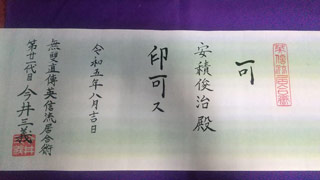 可
安積俊治殿
印可ス
令和五年八月吉日
無雙直傳英信流居合術
第廿一代目 今井三義